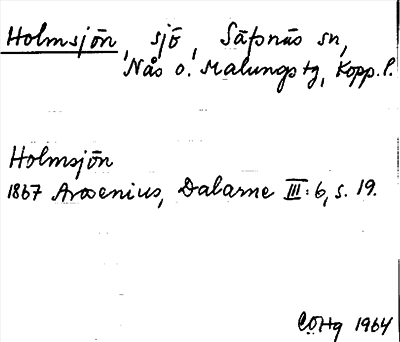 Holmsjön, sjö, Säfsnäs sn,
Nås o. Malungs tg, Kopp. l.
Holmsjön
1867 Arosenius, Dalarne III:6, s. 19.
1964